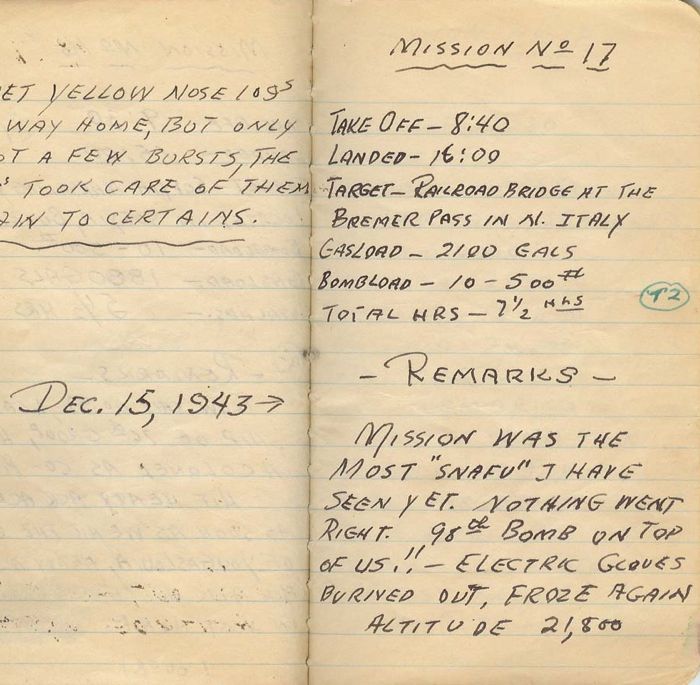 ET YELLOW NOSE 109S
WAY HOME, BUT ONLY
OT A FEW BURSTS, THE
'S TOOK CARE OF THEM
AIN TO CERTAINS.
DEC. 15, 1943→
MISSION No 17
TAKE OFF - 8:40
LANDED - 16:00
TARGET - RAILROAD BRIDGE AT THE
BREMER PASS IN N. ITALY
GASLOAD - 2100 GALS
BOMBLOAD - 10 - 500#
TOTAL HRS - 7 1/2 HRS
- REMARKS -
MISSION WAS THE
MOST "SNAFU" I HAVE
SEEN YET. NOTHING WENT
RIGHT. 98th BOMB ON TOP
OF US.!! - ELECTRIC GLOVES
BURNED OUT, FROZE AGAIN
ALTITUDE 21,800